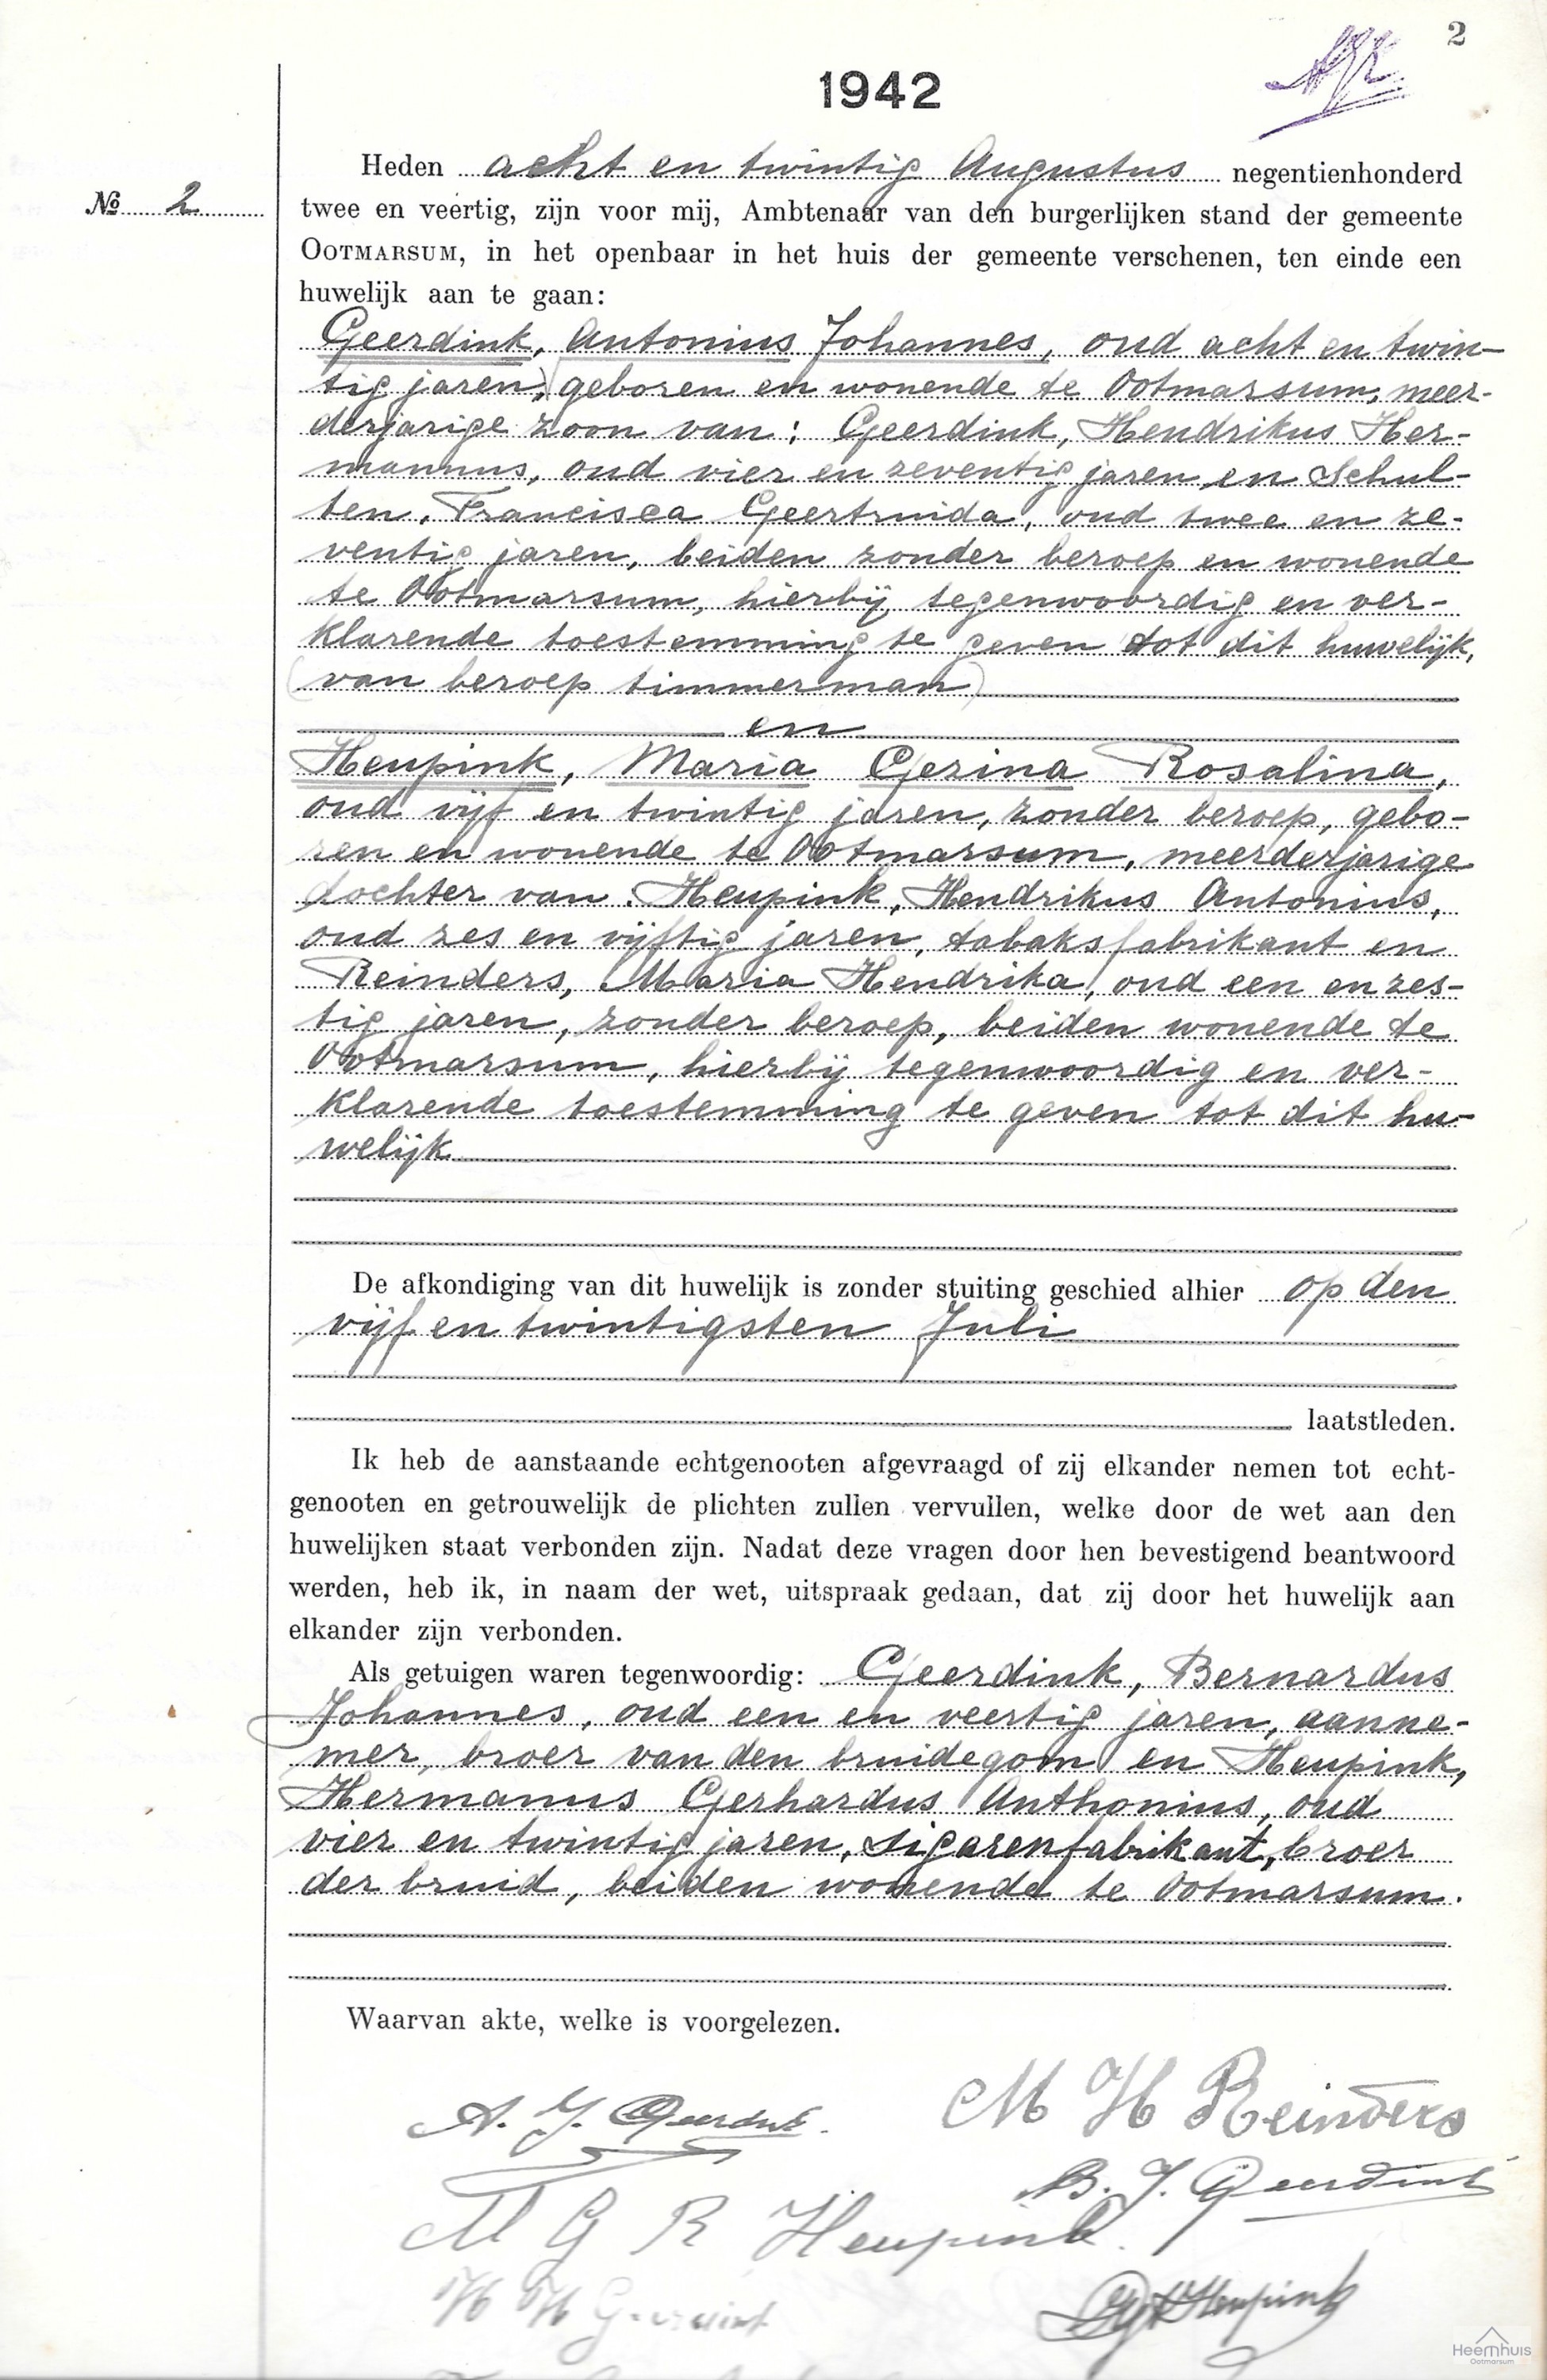 2
1942
Heden acht en twintig Augustus negentienhonderd
№ 2
twee en veertig, zijn voor mij, Ambtenaar van den burgerlijken stand der gemeente
OOTMARSUM, in het openbaar in het huis der gemeente verschenen, ten einde een
huwelijk aan te gaan:
Geerdink, Antonius Johannes, oud acht en twin-
tig jaren, geboren en wonende te Ootmarsum, meer-
derjarige zoon van: Geerdink, Hendrikus Her-
mannus, oud vier en zeventig jaren en Schul-
ten, Francisca Geertruida, oud twee en ze-
ventig jaren, beiden zonder beroep en wonende
te Ootmarsum, hierbij tegenwoordig en ver-
klarende toestemming te geven tot dit huwelijk,
(van beroep timmerman)
en
Heupink, Maria Gezina Rosalina,
oud vijf en twintig jaren, zonder beroep, gebo-
ren en wonende te Ootmarsum, meerderjarige
dochter van: Heupink, Hendrikus Antonius,
oud zes en vijftig jaren, tabaksfabrikant en
Reinders, Maria Hendrika, oud een en zes-
tig jaren, zonder beroep, beiden wonende te
Ootmarsum, hierbij tegenwoordig en ver-
klarende toestemming te geven tot dit hu-
welijk
De afkondiging van dit huwelijk is zonder stuiting geschied alhier op den
vijf en twintigsten Juli
laatstleden.
Ik heb de aanstaande echtgenooten afgevraagd of zij elkander nemen tot echt-
genooten en getrouwelijk de plichten zullen vervullen, welke door de wet aan den
huwelijken staat verbonden zijn. Nadat deze vragen door hen bevestigend beantwoord
werden, heb ik, in naam der wet, uitspraak gedaan, dat zij door het huwelijk aan
elkander zijn verbonden.
Als getuigen waren tegenwoordig: Geerdink, Bernardus
Johannes, oud een en veertig jaren, aanne-
mer, broer van den bruidegom en Heupink,
Hermanus Gerhardus Anthonius, oud
vier en twintig jaren, sigarenfabrikant, broer
der bruid, beiden wonende te Ootmarsum.
Waarvan akte, welke is voorgelezen.
A. J. Geerdink
M H Reinders
B. J. Geerdink
M G R Heupink
H H Geerdink
Heupink
Heemhuis
Ootmarsum